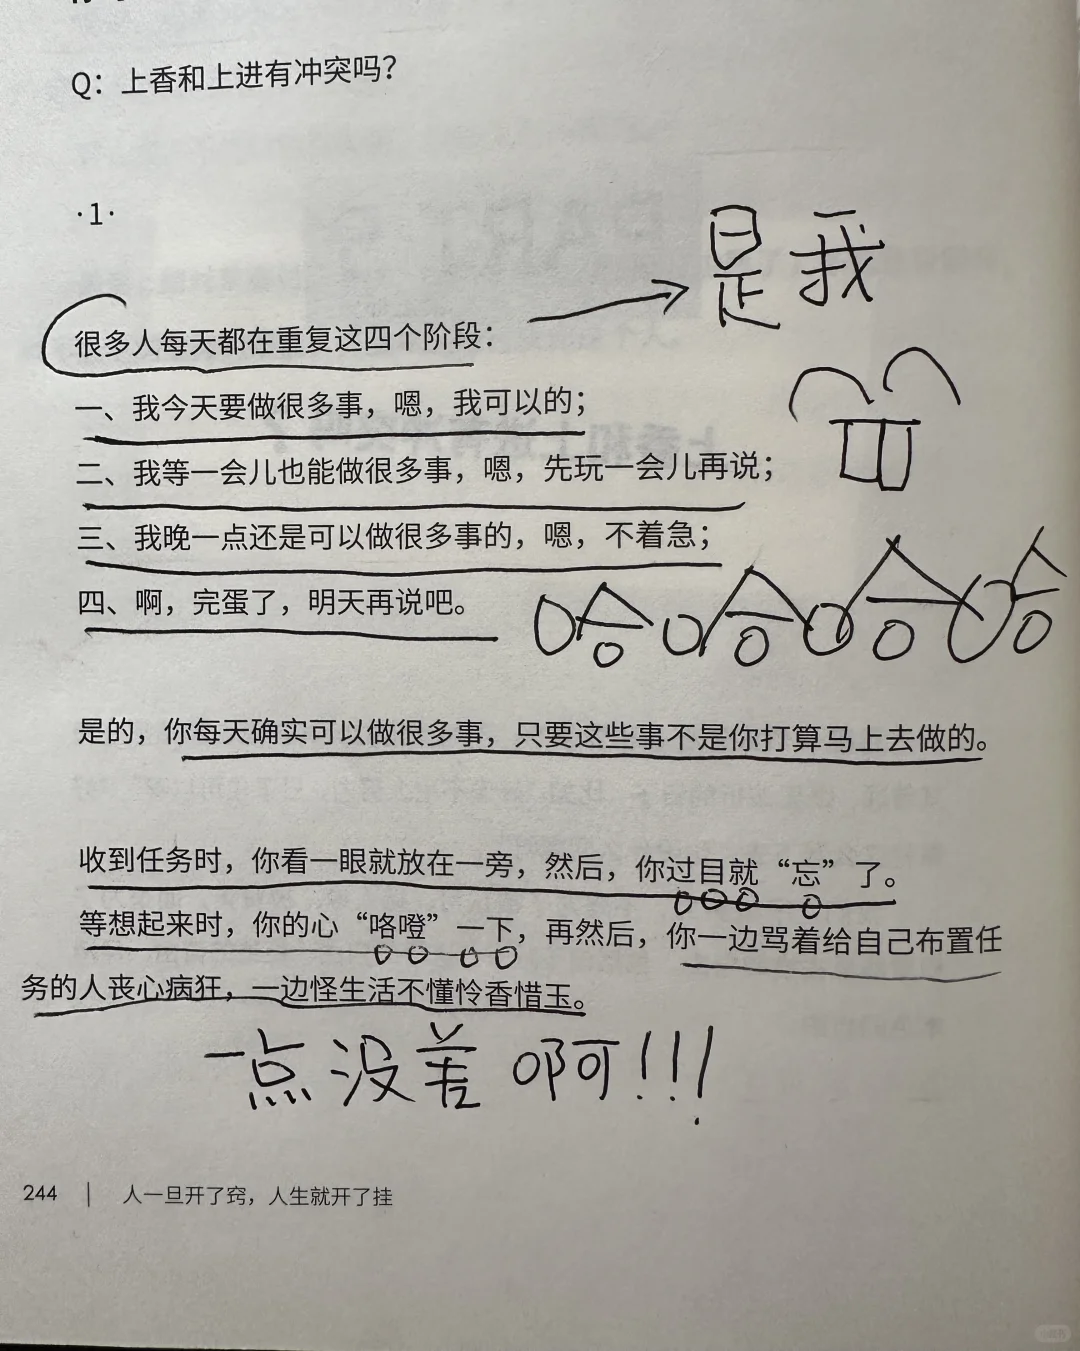 Q：上香和上进有冲突吗？
·1·
是我
很多人每天都在重复这四个阶段：
一、我今天要做很多事，嗯，我可以的；
二、我等一会儿也能做很多事，嗯，先玩一会儿再说；
三、我晚一点还是可以做很多事的，嗯，不着急；
四、啊，完蛋了，明天再说吧。
是的，你每天确实可以做很多事，只要这些事不是你打算马上去做的。
收到任务时，你看一眼就放在一旁，然后，你过目就“忘”了。
等想起来时，你的心“咯噔”一下，再然后，你一边骂着给自己布置任
务的人丧心病狂，一边怪生活不懂怜香惜玉。
一点没差啊!!!
244 | 人一旦开了窍，人生就开了挂